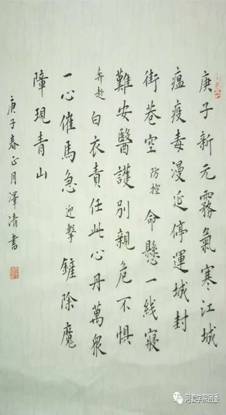 庚子新元霧氣寒江城
瘟疫毒漫近停運城封
街巷空防控命懸一线寝
難安醫護別親危不惧
奔赴白衣責任此心丹萬衆
一心催馬急迎擊鏟除魔
障現青山
庚子春正月澤清書